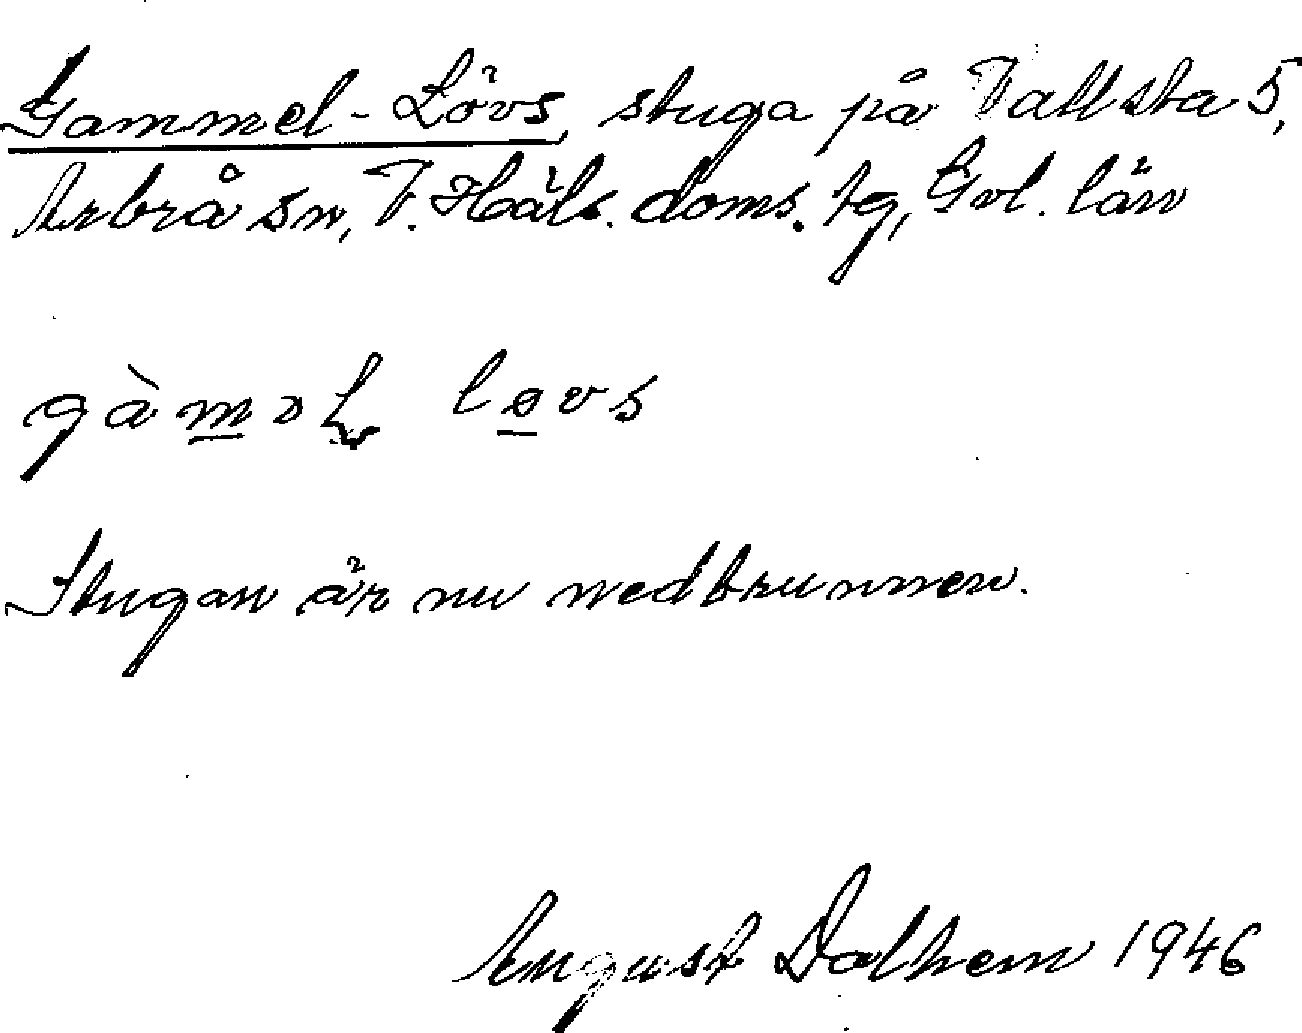 Gammel-Lövs, stuga på Vallsta 5,
Arbrå sn, V. Häls. doms. tg, Gvl. län
gàm̲əl lo̲vs
Stugan är nu nedbrunnen.
August Dalhem 1946